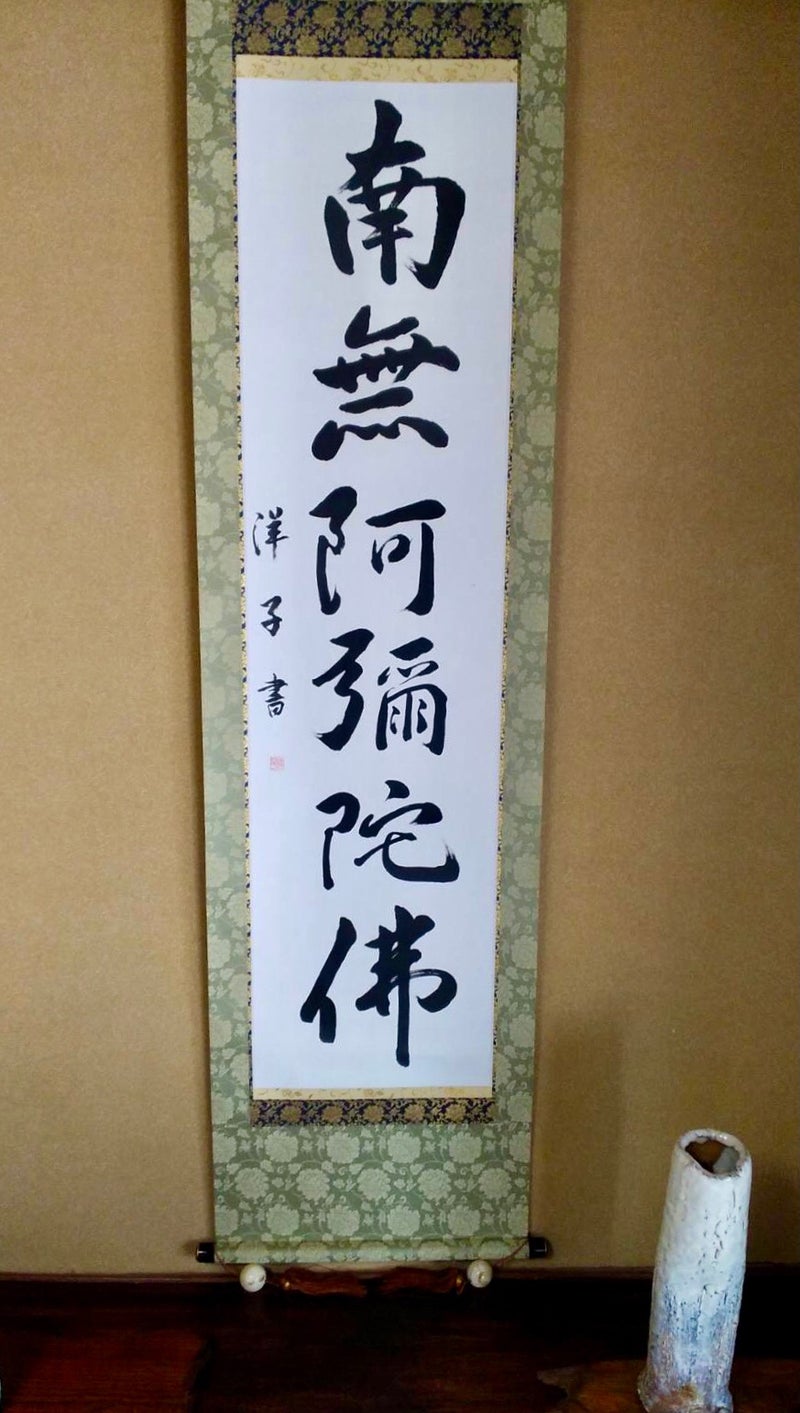 南無阿彌陀佛
洋子書